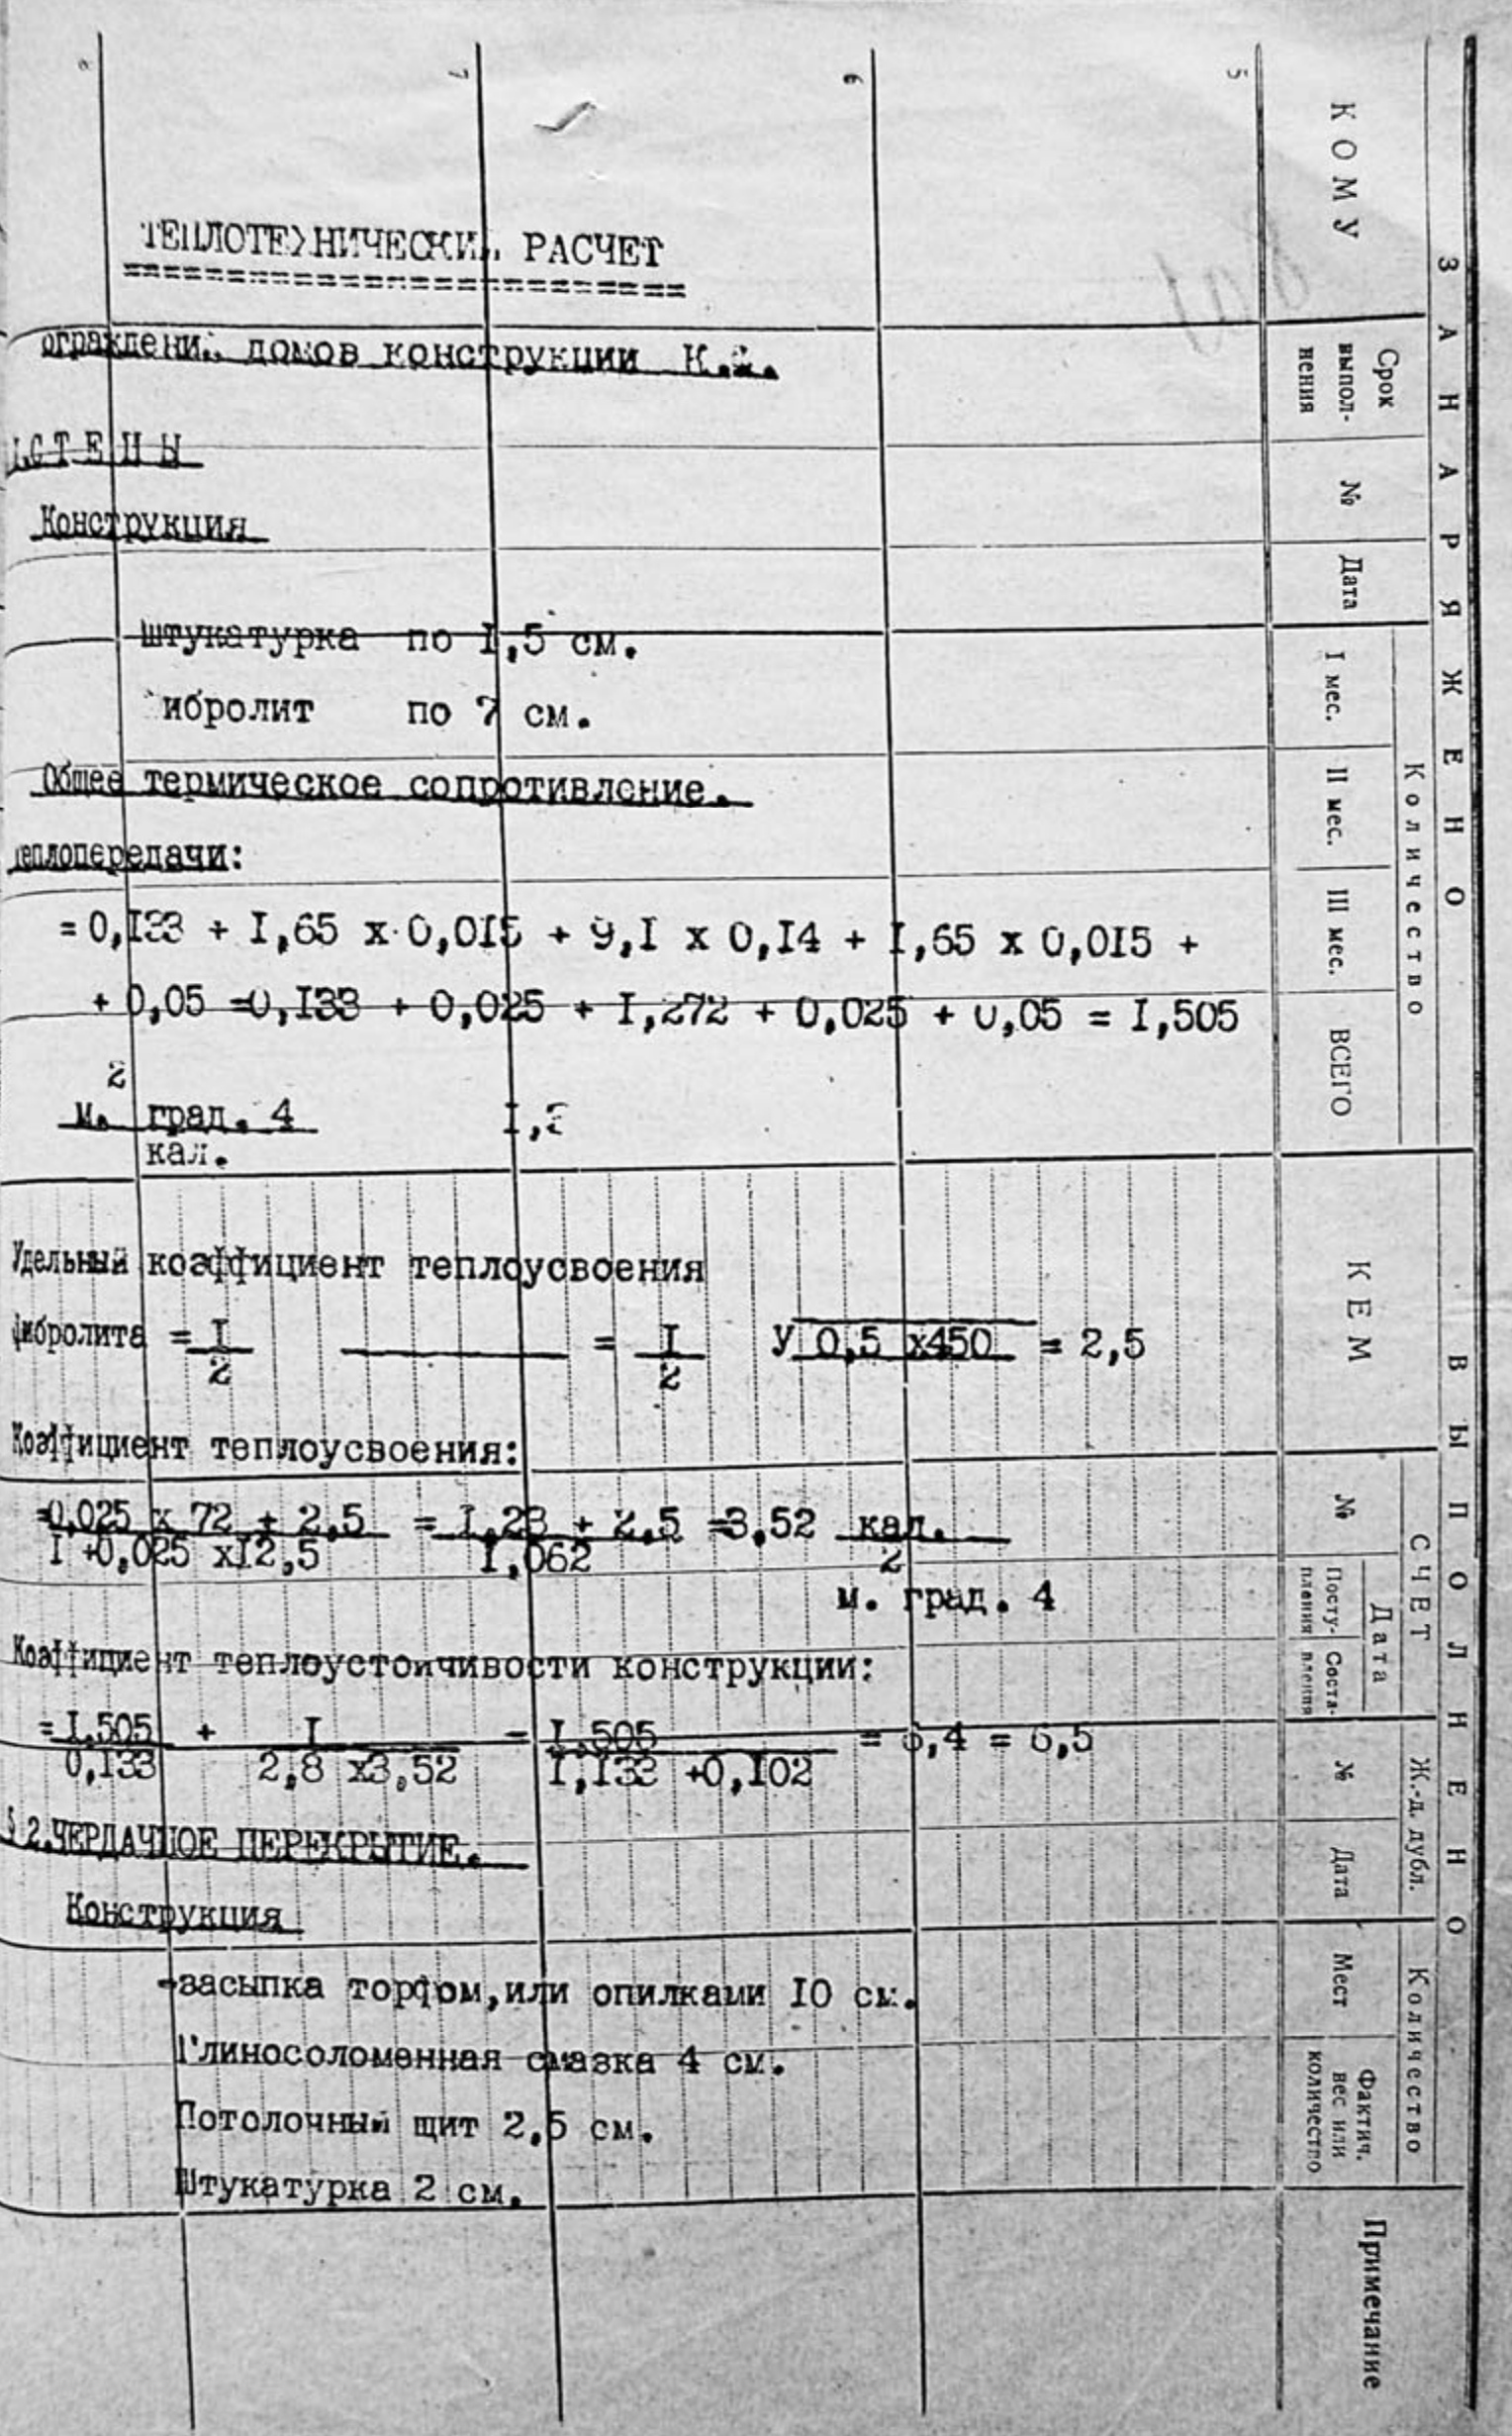 8 7 6 5
ТЕПЛОТЕХНИЧЕСКИЙ РАСЧЕТ
ограждений домов конструкции
СТЕНЫ
Конструкция
Штукатурка по I,5 см.
ибролит по 7 см.
Общее термическое сопротивление.
теплопередачи:
= 0,133 + I,65 x 0,0I5 + 9,I x 0,I4 + I,65 x 0,0I5 +
+ 0,05 =0,I33 + 0,025 + I,272 + 0,025 + 0,05 = I,505
2
м. град. 4
кал.
Удельный коэффициент теплоусвоения
фибролита = I = I У 0,5 x450 = 2,5
2 2
Коэффициент теплоусвоения:
=0,025 x 72 + 2,5 = I,23 + 2,5 =3,52 кал.
I +0,025 xI2,5 I,062 2
м. град. 4
Коэффициент теплоустойчивости конструкции:
= I,505 + I = I,505 = 6,4 = 6,5
0,133 2,8 x3,52 I,I33 +0,I02
§ 2.ЧЕРДАЧНОЕ ПЕРЕКРЫТИЕ.
Конструкция
-засыпка торфом,или опилками I0 см.
Глиносоломенная смазка 4 см.
Потолочный щит 2,5 см.
Штукатурка 2 см.
ЗАНАРЯЖЕНО
КОМУ
Срок выпол-
нения
№
Дата
Количество
I мес.
II мес.
III мес.
ВСЕГО
ВЫПОЛНЕНО
КЕМ
СЧЕТ
№
Дата
Посту-
пления
Соста-
вления
Ж.-д. дубл.
№
Дата
Количество
Мест
Фактич.
вес или
количество
Примечание